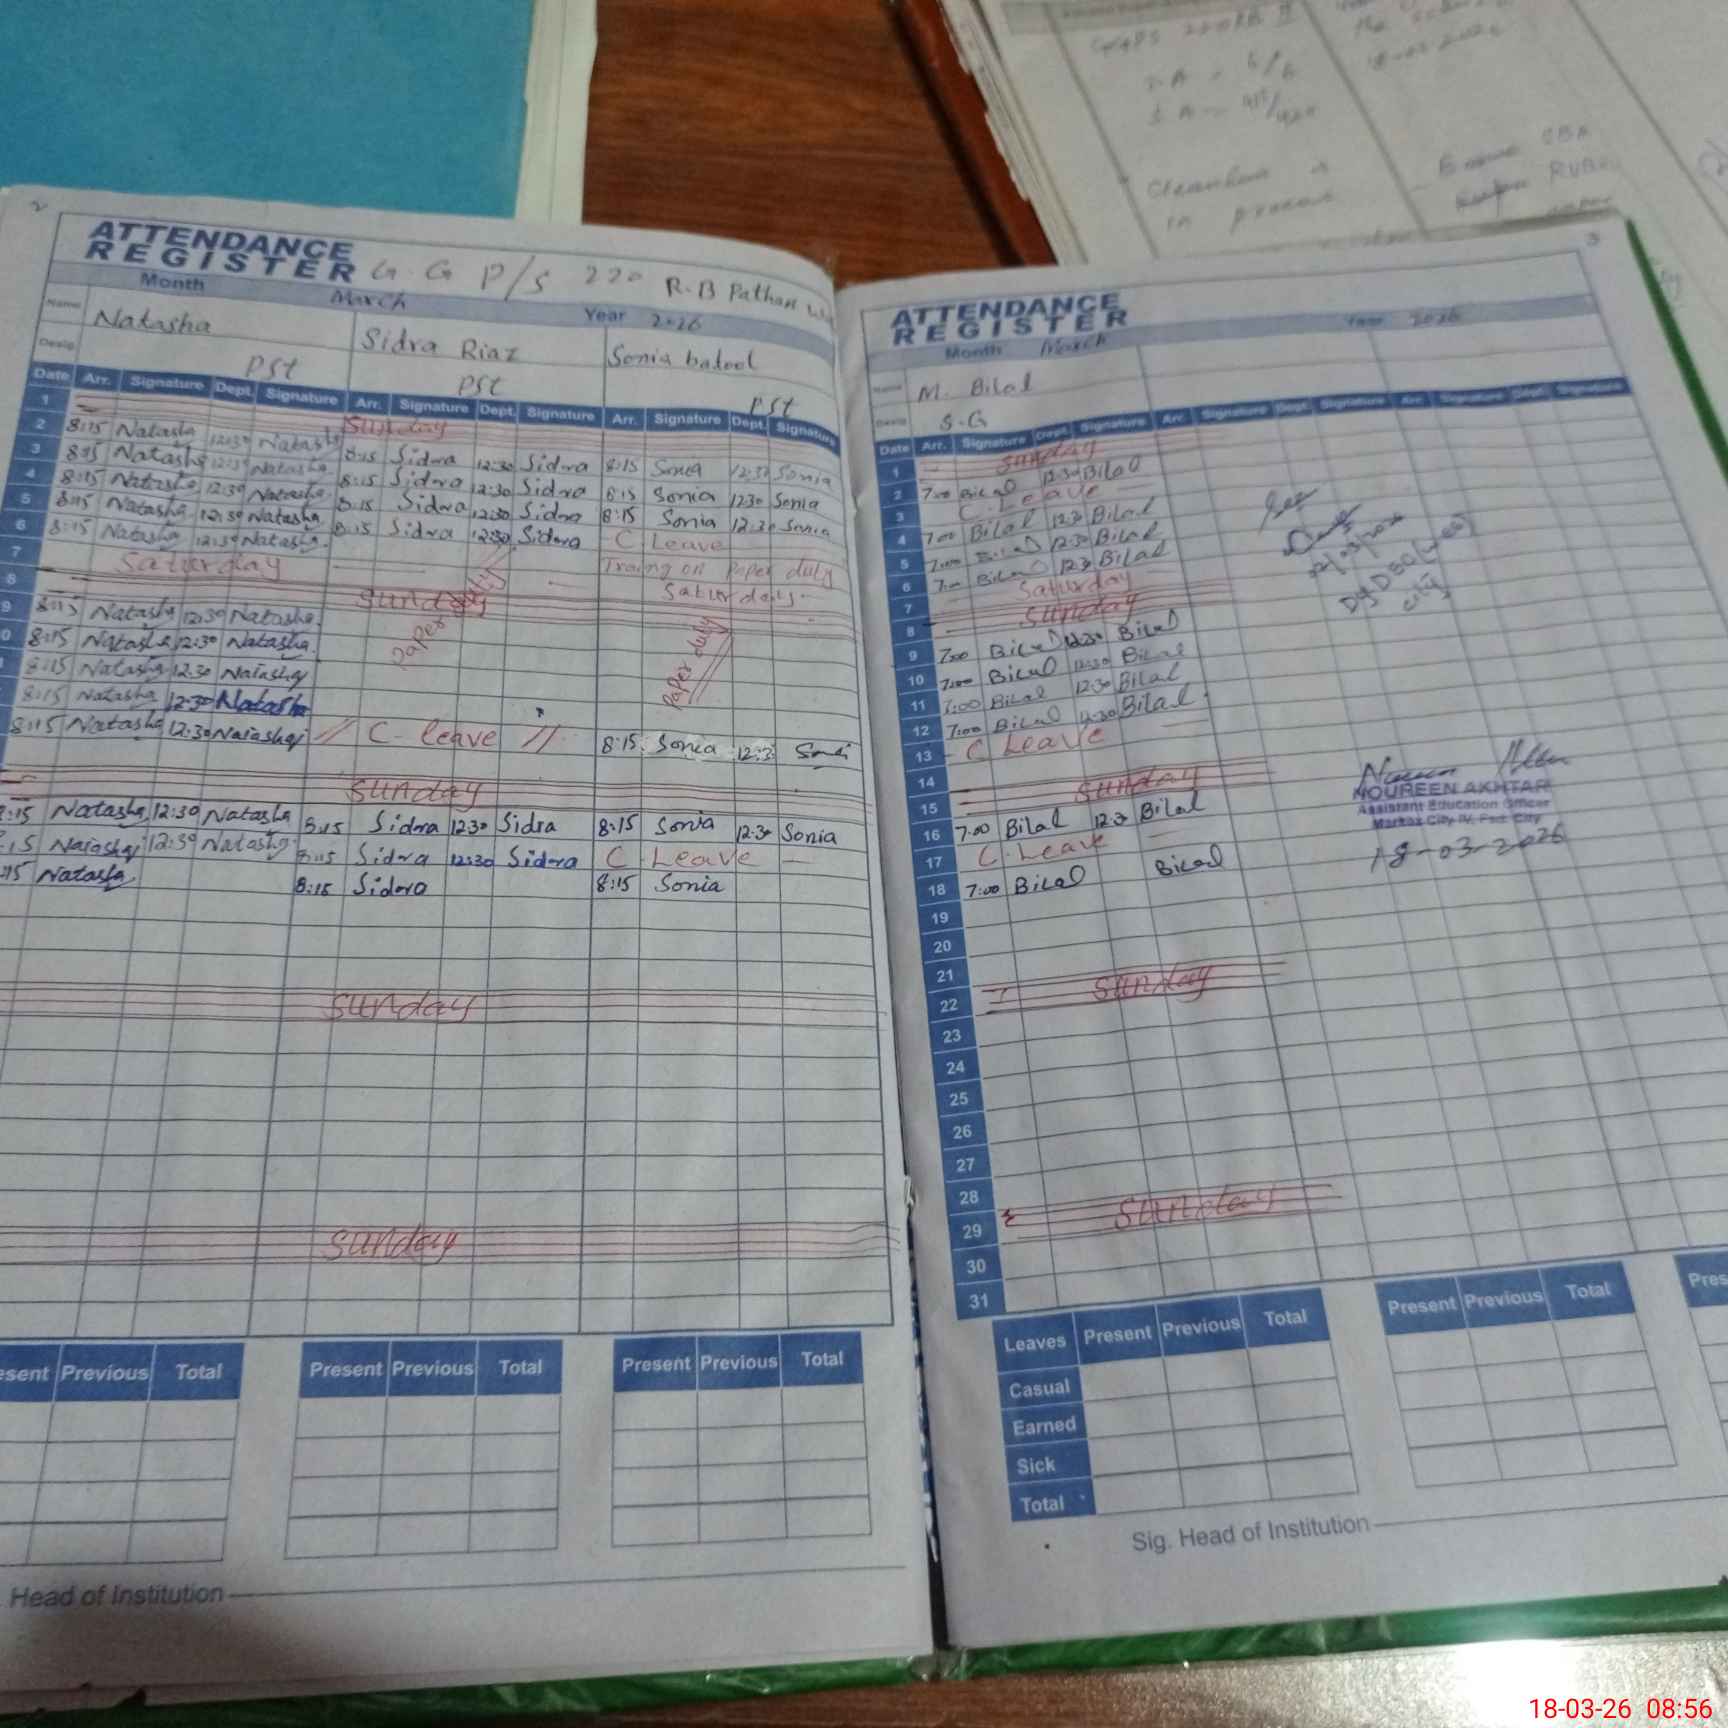 2
ATTENDANCE
REGISTER G.G P/S 220 R.B Pathan
Month March Year 2026
Name Natasha Sidra Riaz Sonia batool
Desig. PST PST PST
Date Arr. Signature Dept. Signature Arr. Signature Dept. Signature Arr. Signature Dept. Signature
1 Sunday
2 8:15 Natasha 12:30 Natasha 8:15 Sidra 12:30 Sidra 8:15 Sonia 12:30 Sonia
3 8:15 Natasha 12:30 Natasha 8:15 Sidra 12:30 Sidra 8:15 Sonia 12:30 Sonia
4 8:15 Natasha 12:30 Natasha 8:15 Sidra 12:30 Sidra 8:15 Sonia 12:30 Sonia
5 8:15 Natasha 12:30 Natasha 8:15 Sidra 12:30 Sidra C Leave
6 8:15 Natasha 12:30 Natasha paper duty
7 Saturday Saturday
8 Sunday
9 8:15 Natasha 12:30 Natasha Paper duty Paper duty
0 8:15 Natasha 12:30 Natasha
8:15 Natasha 12:30 Natasha
8:15 Natasha 12:30 Natasha
8:15 Natasha 12:30 Natasha // C- leave // 8:15 Sonia
Sunday
8:15 Natasha 12:30 Natasha 8:15 Sidra 12:30 Sidra 8:15 Sonia 12:30 Sonia
:15 Natasha 12:30 Natasha 8:15 Sidra 12:30 Sidra C Leave —
:15 Natasha 8:15 Sidra 8:15 Sonia
Sunday
Sunday
esent Previous Total Present Previous Total Present Previous Total
Head of Institution
3
ATTENDANCE
REGISTER
Month March Year 2026
Name M. Bilal
Desig S.G
Date Arr. Signature Dept. Signature Arr. Signature Dept. Signature Arr. Signature Dept. Signature
1 Sunday
2 7:00 Bilal 12:30 Bilal
3 C. Leave
4 7:00 Bilal 12:30 Bilal
5 7:00 Bilal 12:30 Bilal
6 7:00 Bilal 12:30 Bilal
7 Saturday
8 Sunday
9 7:00 Bilal 12:30 Bilal
10 7:00 Bilal 12:30 Bilal
11 7:00 Bilal 12:30 Bilal
12 7:00 Bilal 12:30 Bilal
13 C Leave
14
15 Sunday
16 7:00 Bilal 12:30 Bilal
17 C. Leave
18 7:00 Bilal Bilal
19
20
21
22 Sunday
23
24
25
26
27
28
29 Sunday
30
31
See
City
NOUREEN AKHTAR
Assistant Education Officer
Markaz City IV, Fsd. City
18-03-2026
Leaves Present Previous Total Present Previous Total Pres
Casual
Earned
Sick
Total
Sig. Head of Institution
18-03-26 08:56